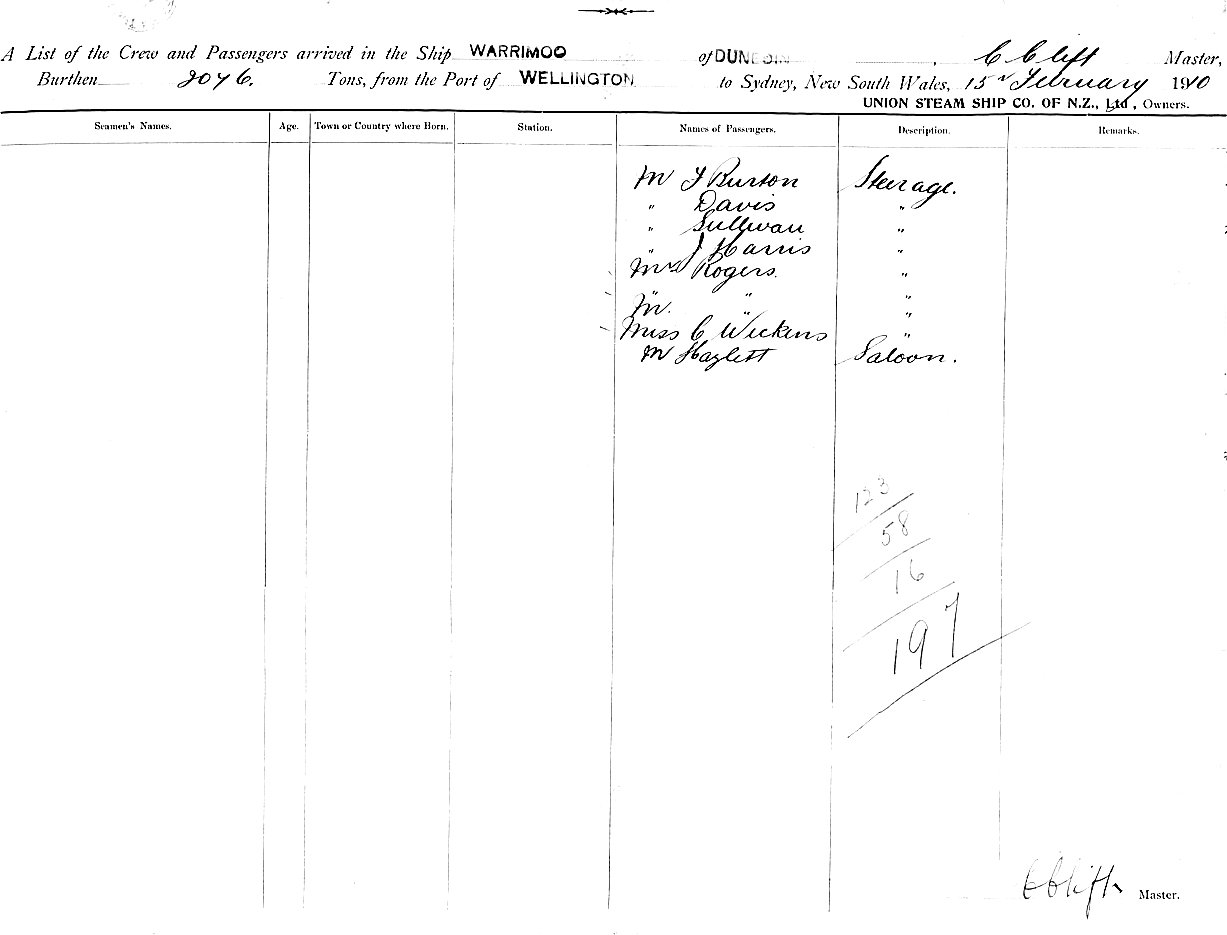 A List of the Crew and Passengers arrived in the Ship WARRIMOO of DUNEDIN, C Clift Master,
Burthen 2076. Tons, from the Port of WELLINGTON to Sydney, New South Wales, 15th February 1910
UNION STEAM SHIP CO. OF N.Z., Ltd, Owners.
Seamen's Names. Age. Town or Country where Born. Station. Names of Passengers. Description. Remarks.
Mr Burton Steerage.
" Davis "
" Sullivan "
" J Harris "
Mrs Rogers. "
" " "
Mr. " "
Miss C Wickens "
Mr Hazlett Saloon.
123
58
16
197
C Clift Master.